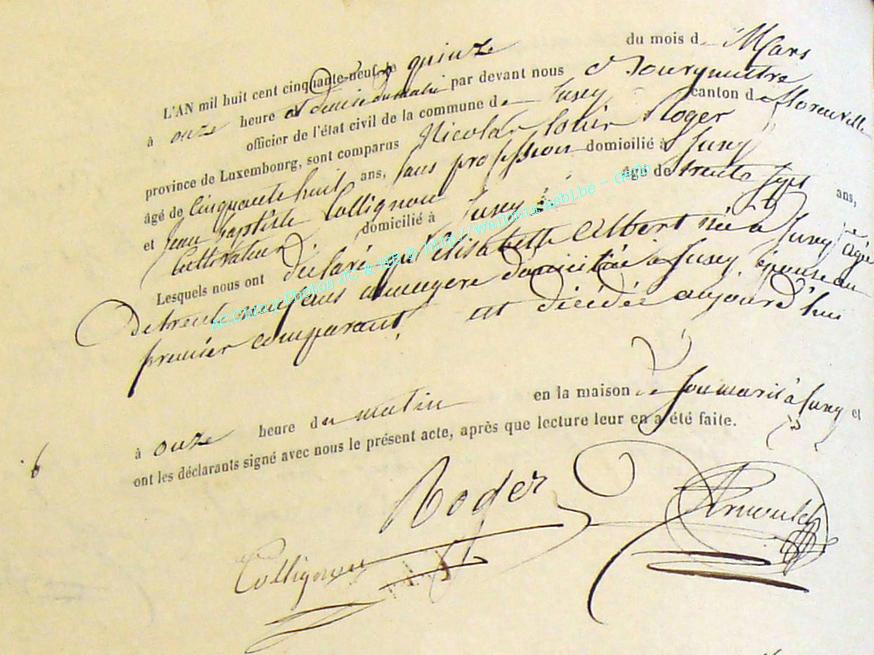 L'AN mil huit cent cinquante-neuf, le quinze du mois de Mars
à onze heure et demie du matin par devant nous Bourgmestre
officier de l'état civil de la commune de Jusey canton de florenville
province de Luxembourg, sont comparus Nicolas Louis Roger
âgé de Cinquante huit ans, sans profession domicilié à Jusey
et Jean Baptiste Collignon âgé de trente sept ans,
Cultivateur domicilié à Jusey
Lesquels nous ont déclaré qu'Elisabeth Albert née à Jusey âgée
De trente neuf ans menagere domiciliée à Jusey, épouse au
premier comparant, est décédée aujourd'hui
à onze heure du matin en la maison de son mari à Jusey et
ont les déclarants signé avec nous le présent acte, après que lecture leur en a été faite.
6
Roger
Collignon